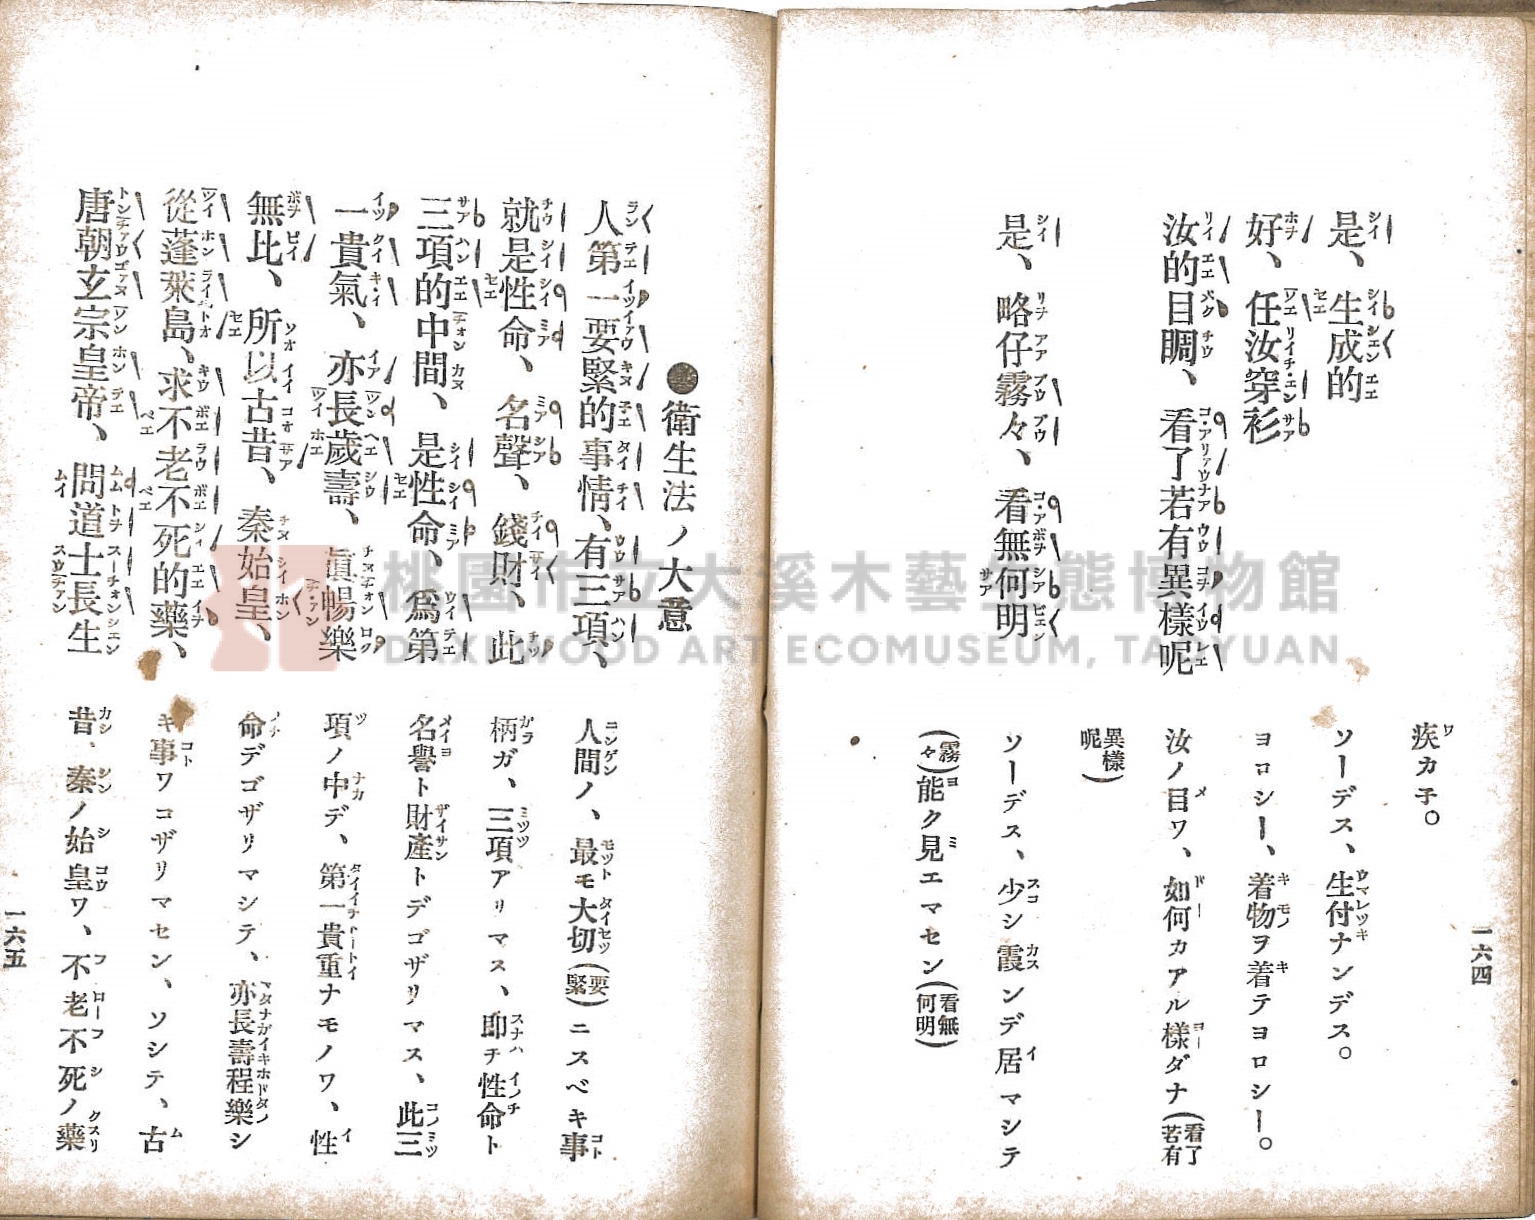 一六四
是、生成的
好、任汝穿衫
汝的目睭、看了若有異樣呢
是、略仔霧々、看無何明
疾カ子。
ソーデス、生付ナンデス。
ヨロシー、着物ヲ着テヨロシー。
汝ノ目ワ、如何カアル樣ダナ(看了若有
異樣呢)
ソーデス、少シ霞ンデ居マシテ
(霧々)能ク見エマセン(看無何明)
衛生法ノ大意
人第一要緊的事情、有三項、
就是性命、名聲、錢財、此
三項的中間、是性命、爲第
一貴氣、亦長歲壽、眞暢樂
無比、所以古昔、秦始皇、
從蓬萊島、求不老不死的藥、
唐朝玄宗皇帝、問道士長生
人間ノ、最モ大切(要緊)ニスベキ事
柄ガ、三項アリマス、即チ性命ト
名譽ト財產トデゴザリマス、此三
項ノ中デ、第一貴重ナモノワ、性
命デゴザリマシテ、亦長壽程樂シ
キ事ワコザリマセン、ソシテ、古
昔、秦ノ始皇ワ、不老不死ノ藥
一六五
桃園市立大溪木藝生態博物館
DAXI WOOD ART ECOMUSEUM, TAOYUAN